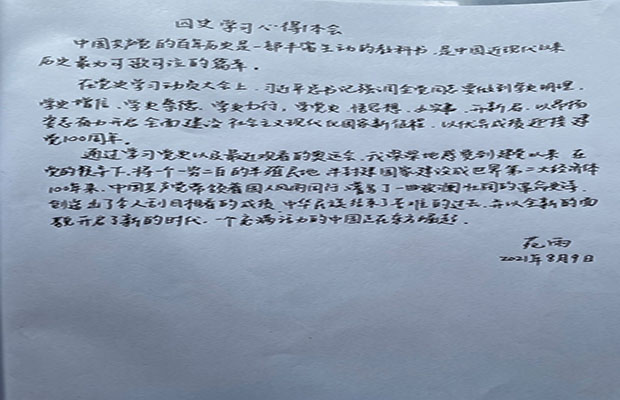 四史学习心得体会
中国共产党的百年历史是一部丰富生动的教科书，是中国近现代以来
历史最为可歌可泣的篇章。
在党史学习动员大会上，习近平总书记强调全党同志要做到学史明理，
学史增信、学史崇德、学史力行，学党史、悟思想、办实事、开新局，以昂扬
姿态奋力开启全面建设社会主义现代化国家新征程，以优异成绩迎接建
党100周年。
通过学习党史以及最近观看的奥运会，我深深地感受到建党以来，在
党的领导下，将一个一穷二白的半殖民地、半封建国家建设成世界第二大经济体
100年来，中国共产党带领着国人风雨同行，谱写了一曲波澜壮阔的革命史诗，
创造出了令人刮目相看的成绩，中华民族结束了苦难的过去，并以全新的面
貌开启了新的时代，一个充满活力的中国正在东方崛起。
苑雨
2021年8月9日